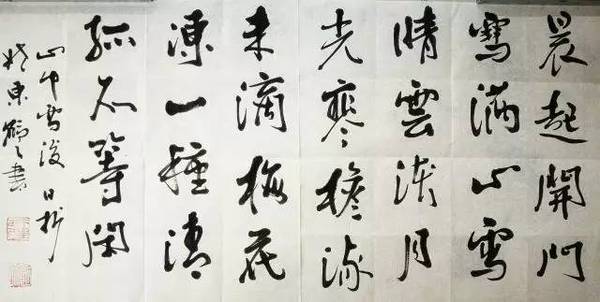 晨起開門
雪滿山雪
晴雲淡月
光寒檐流
未滴梅花
凍一種清
孤不等閑
山中雪後
東書